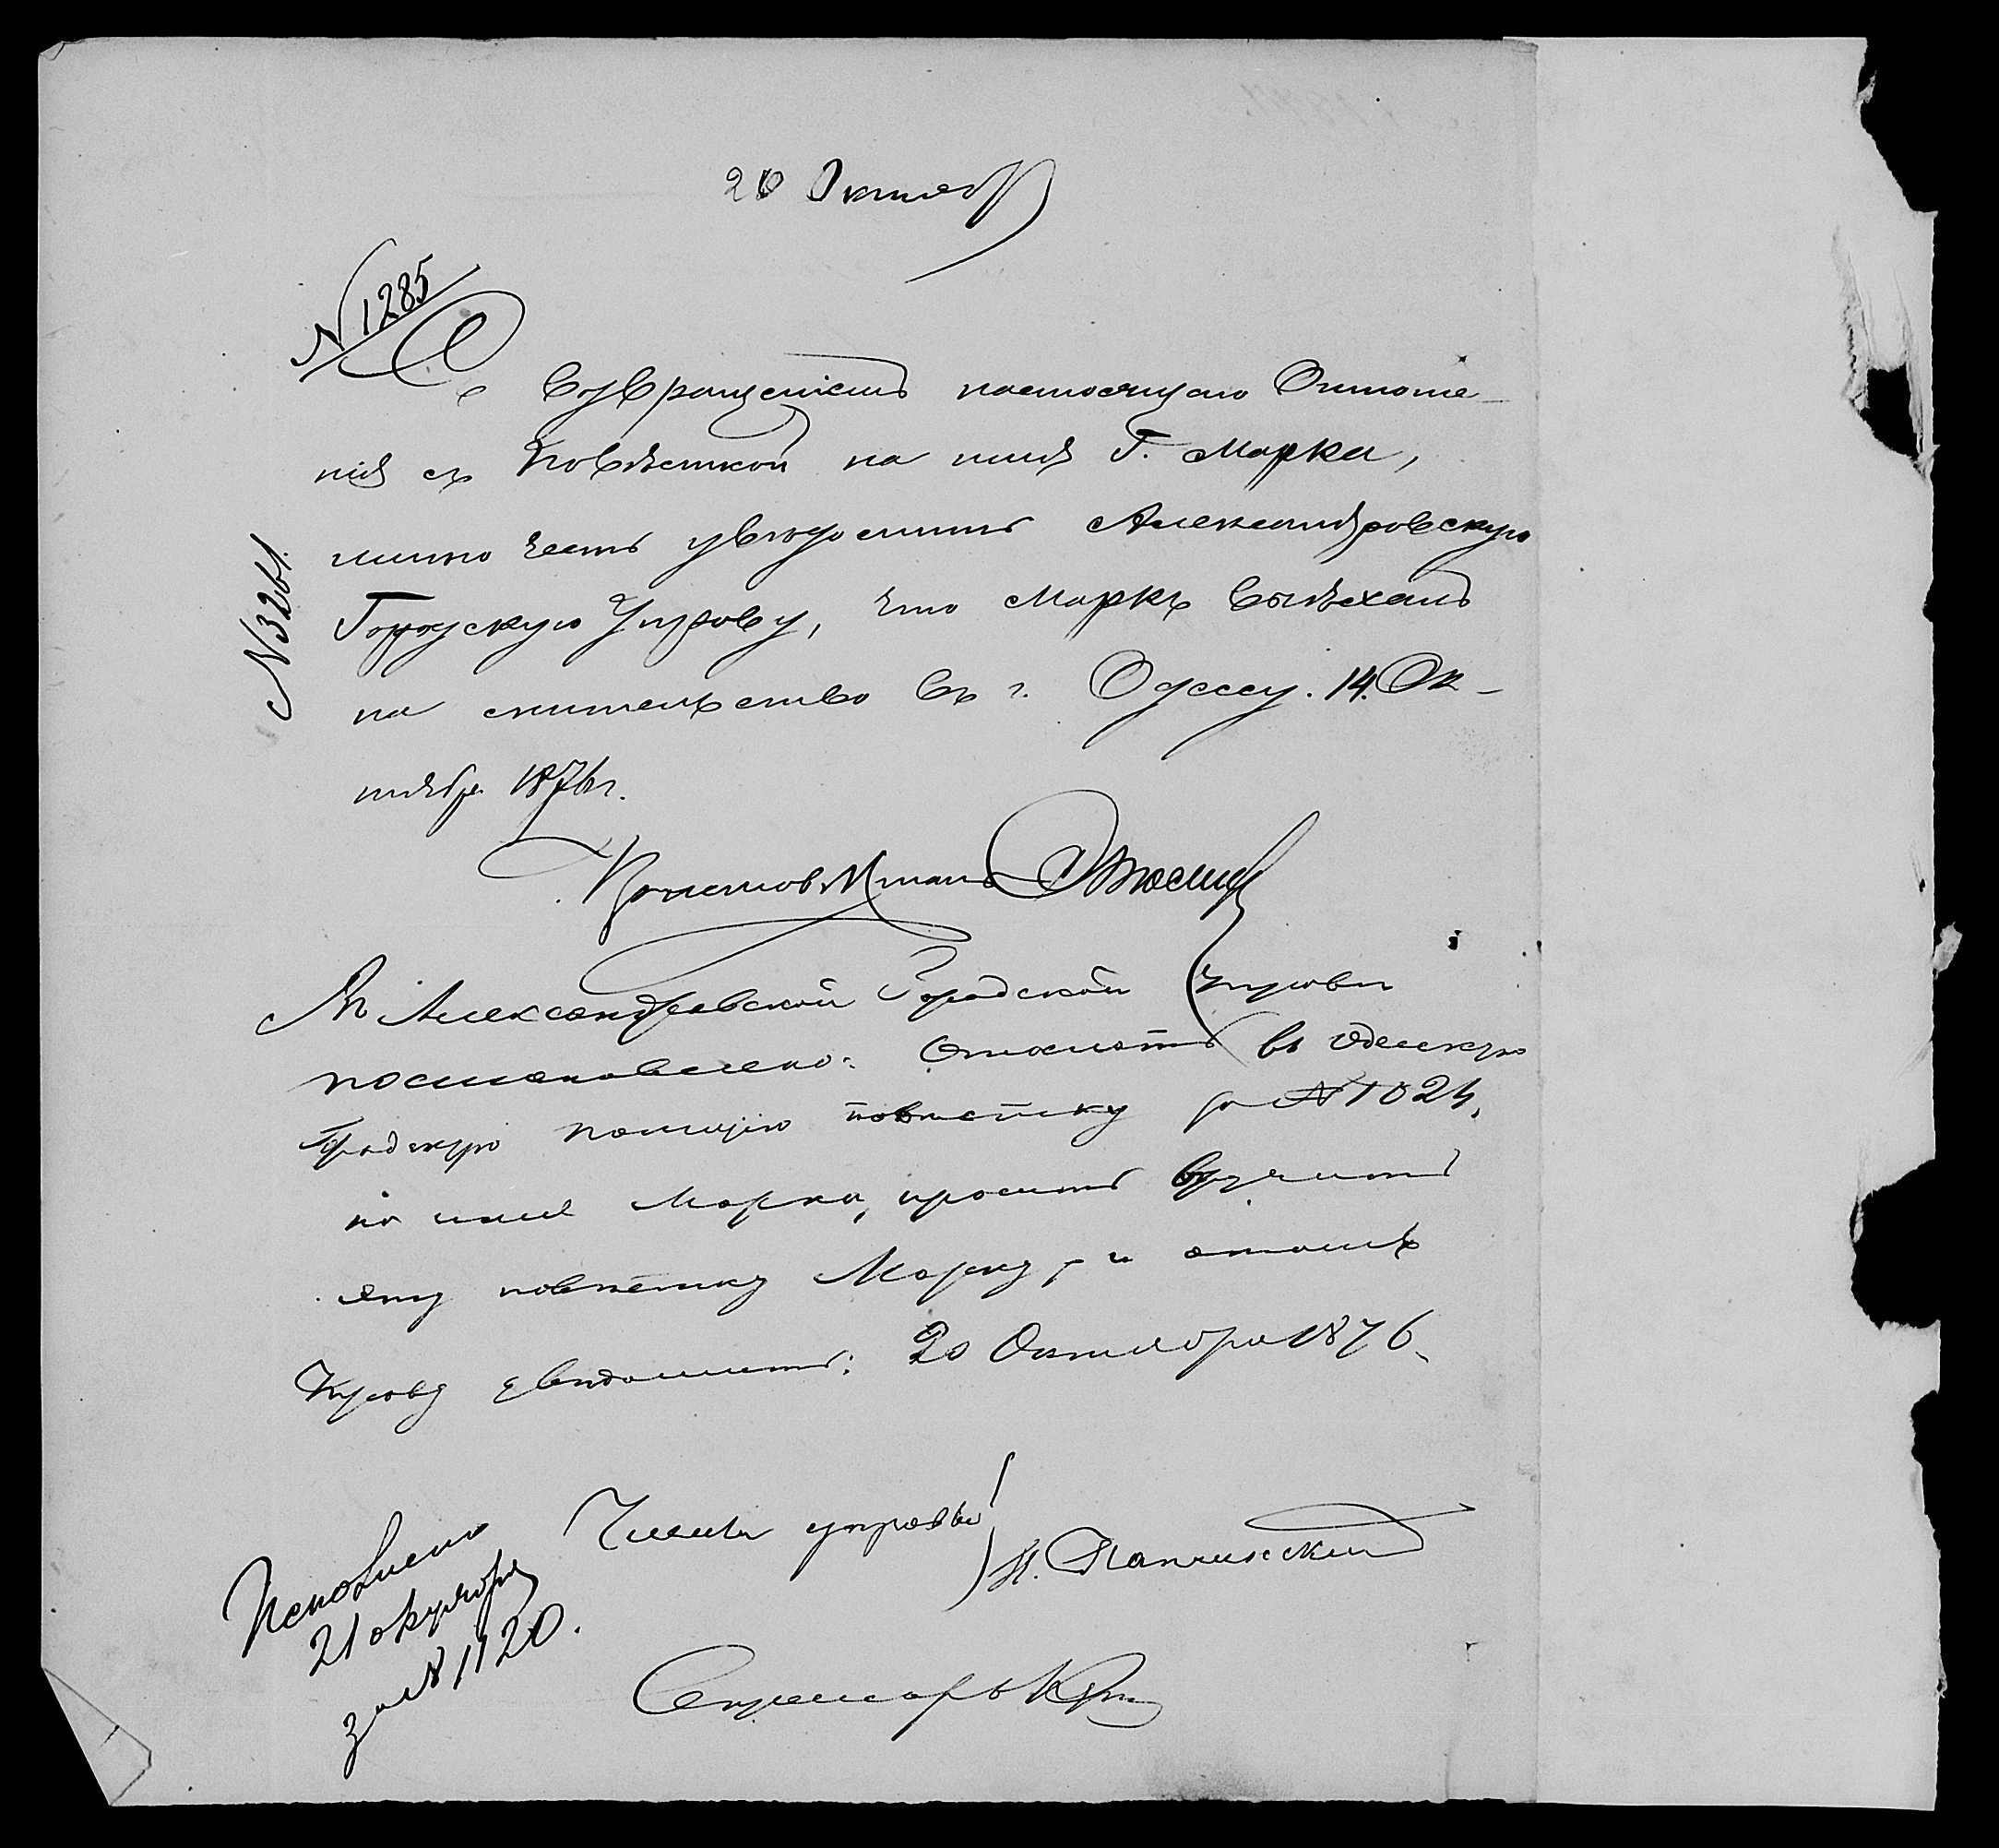 20 Октября
N 1285
Съ Возвращеніемъ настоящаго Отноше-
нія съ повѣсткой на имя Г. Марка,
имѣю честь увѣдомить Александровскую
Городскую Управу, что Маркъ выѣхалъ
на жительство въ г. Одессу. 14. Ок-
тября 1876 г.
N 3261.
Въ Александровской Городской Управѣ
постановлено: Отослать въ Одесскую
Градскую полицію повѣстку за N 1024,
на имя Марка, просить вручить
эту повѣстку Марку, и о томъ
Управу увѣдомить. 20 Октября 1876.
Члены управы
Секретарь
Исполнено
21 октября
за N 1120.